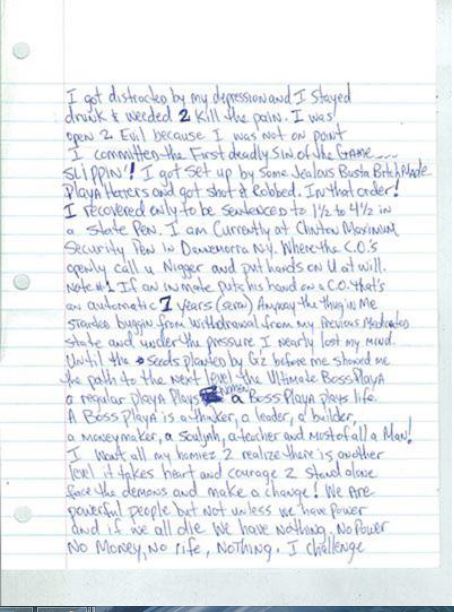 I got distracted by my depression and I stayed
drunk & weeded 2 Kill the pain. I was
open 2 Evil because I was not on point
I committed the First deadly Sin of the GAME ....
SLIPPIN'! I got set up by some Jealous Busta Bitch Made
Playa Haters and got shot & Robbed. In that order!
I recovered only to be sentenced to 1½ to 4½ in
a state Pen. I am Currently at Clinton Maximum
Security Pen in Dannemorra N.Y. Where the C.O.'s
openly call u Nigger and put hands on U at will.
Note #1 If an inmate puts his hand on a C.O. that's
an automatic 7 years (seven) Anyway the thug in Me
started buggin from withdrawal from my Previous Medicated
state and under the pressure I nearly lost my mind.
Until the seeds planted by G'z before me showed me
the path to the next level the Ultimate Boss Playa
a regular playa Plays women a Boss Playa plays life.
A Boss playa is a thinker, a leader, a builder,
a moneymaker, a souljah, a teacher and most of all a Man!
I want all my homiez 2 realize there is another
level it takes heart and courage 2 stand alone
face the demons and make a change! We Are
powerful people but not unless we have power
and if we all die we have nothing. No Power
No Money, No life, Nothing. I challenge